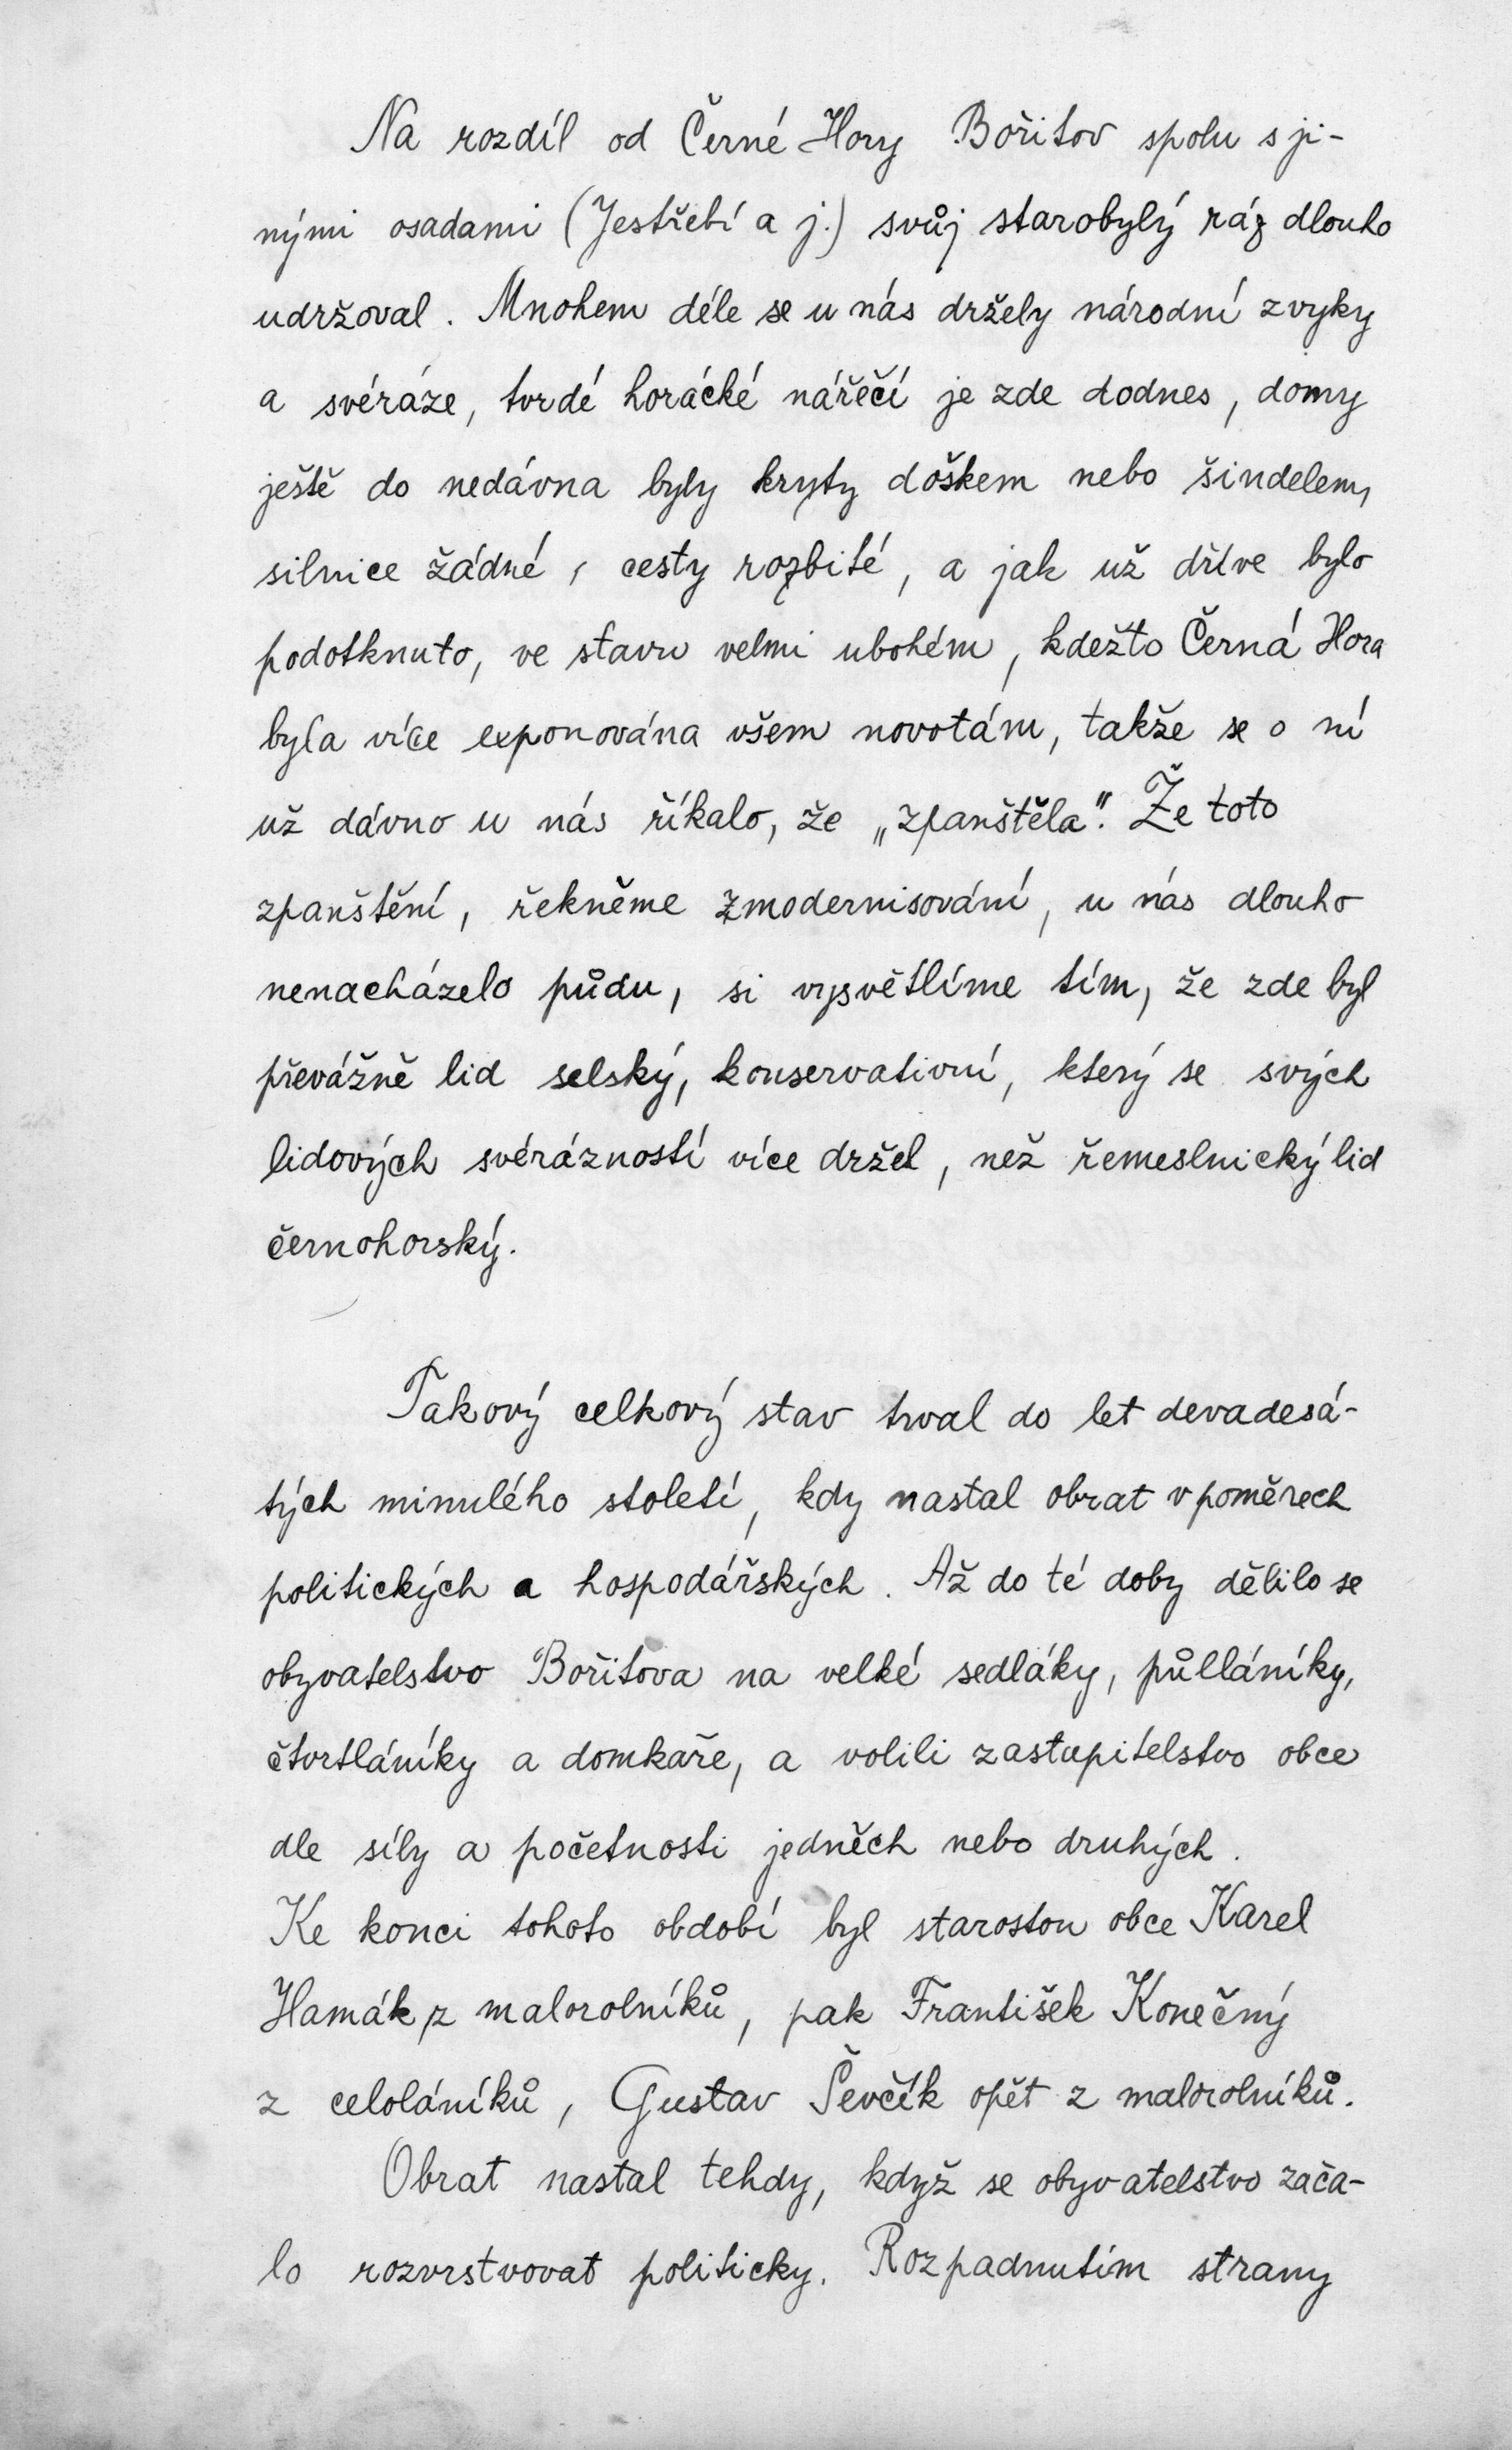 Na rozdíl od Černé Hory Bořitov spolu s ji-
nými osadami (Jestřebí a j.) svůj starobylý ráz dlouho
udržoval. Mnohem déle se u nás držely národní zvyky
a svéráze, tvrdé horácké nářečí je zde dodnes, domy
ještě do nedávna byly kryty doškem nebo šindelem,
silnice žádné, cesty rozbité, a jak už dříve bylo
podotknuto, ve stavu velmi ubohém, kdežto Černá Hora
byla více exponována všem novotám, takže se o ní
už dávno u nás říkalo, že „zpanštěla". Že toto
zpanštění, řekněme zmodernisování, u nás dlouho
nenacházelo půdu, si vysvětlíme tím, že zde byl
převážně lid selský, konservativní, který se svých
lidových svérázností více držel, než řemeslnický lid
černohorský.
Takový celkový stav trval do let devadesá-
tých minulého století, kdy nastal obrat v poměrech
politických a hospodářských. Až do té doby dělilo se
obyvatelstvo Bořitova na velké sedláky, půlláníky,
čtvrtláníky a domkaře, a volili zastupitelstvo obce
dle síly a početnosti jedněch nebo druhých.
Ke konci tohoto období byl starostou obce Karel
Hamák z malorolníků, pak František Konečný
z celoláníků, Gustav Ševčík opět z malorolníků.
Obrat nastal tehdy, když se obyvatelstvo zača-
lo rozvrstvovat politicky. Rozpadnutím strany